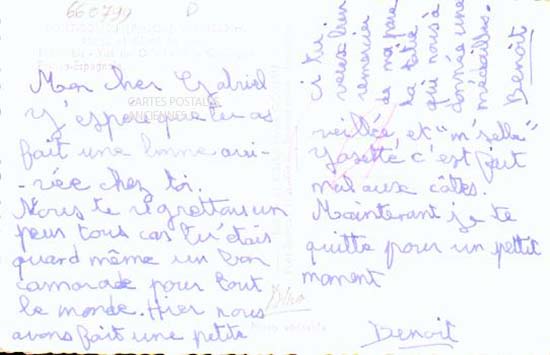 660799 D
Mon cher Gabriel
CARTES POSTALES
ANCIENNES
J'espère que tu as
fait une bonne arri-
-vée chez toi.
Nous te regrettons un
peus tous cas tu étais
quand même un bon
camarade pour tout
le monde. Hier nous
avons fait une petite
veillée et "m'selle"
Yasette c'est fait
mal aux câttes.
Maintenant je te
quitte pour un pettit
moment
Benoit
i tu
veux bien
remercier
de ma part
ta tâte
qui nous à
donnée une
médailles.
Benoît